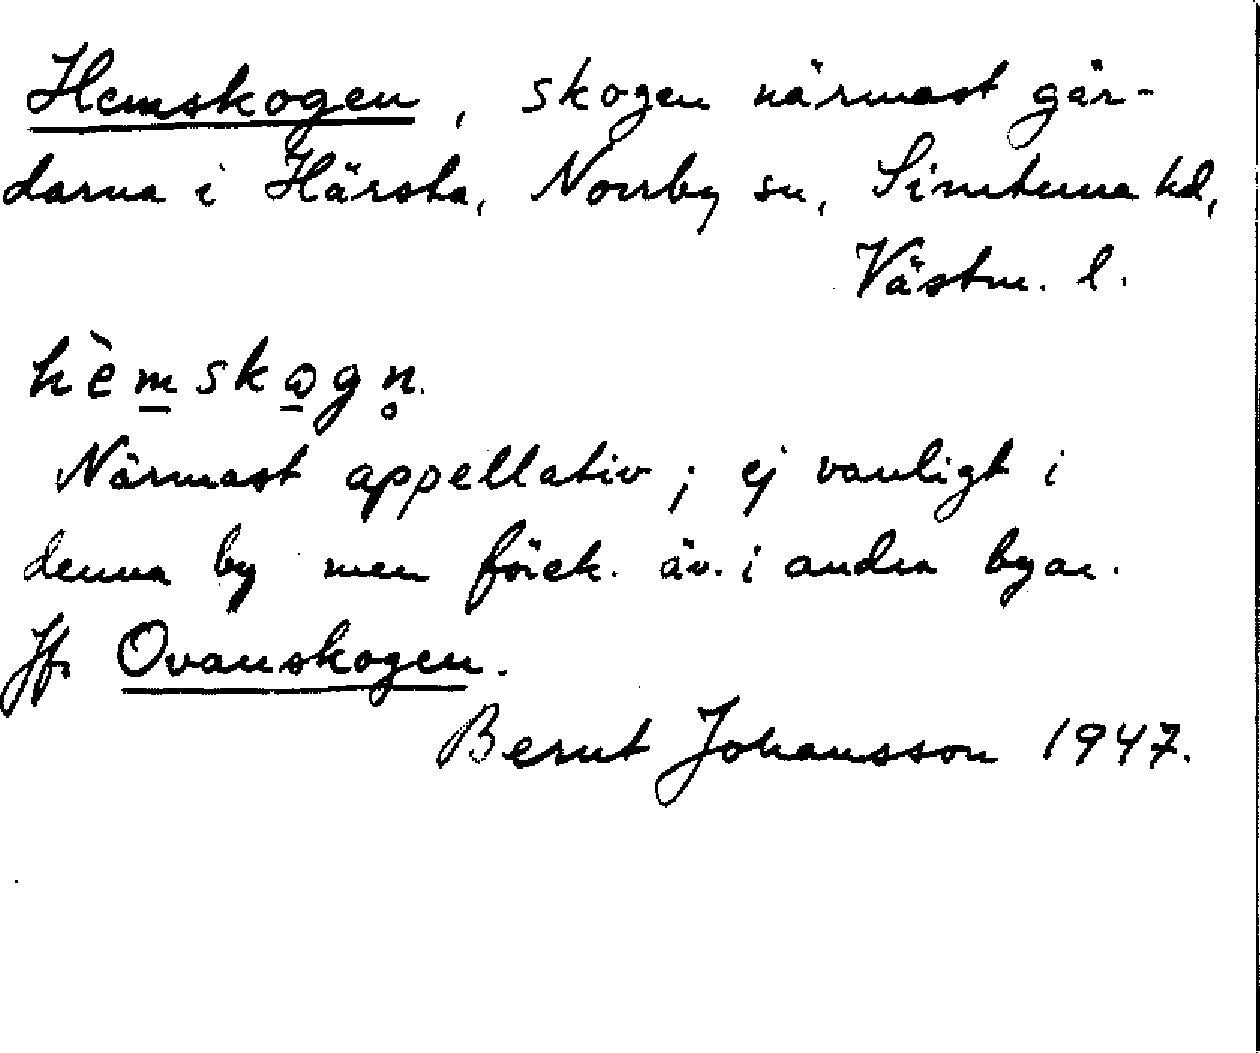 Hemskogen, skogen närmast går-
darna i Härsta, Norrby sn, Simtuna hd,
Västm. l.
hèmskogn.
Närmast appellativ; ej vanligt i
denna by men förek. äv. i andra byar.
Jfr Ovanskogen.
Bernt Johansson 1947.